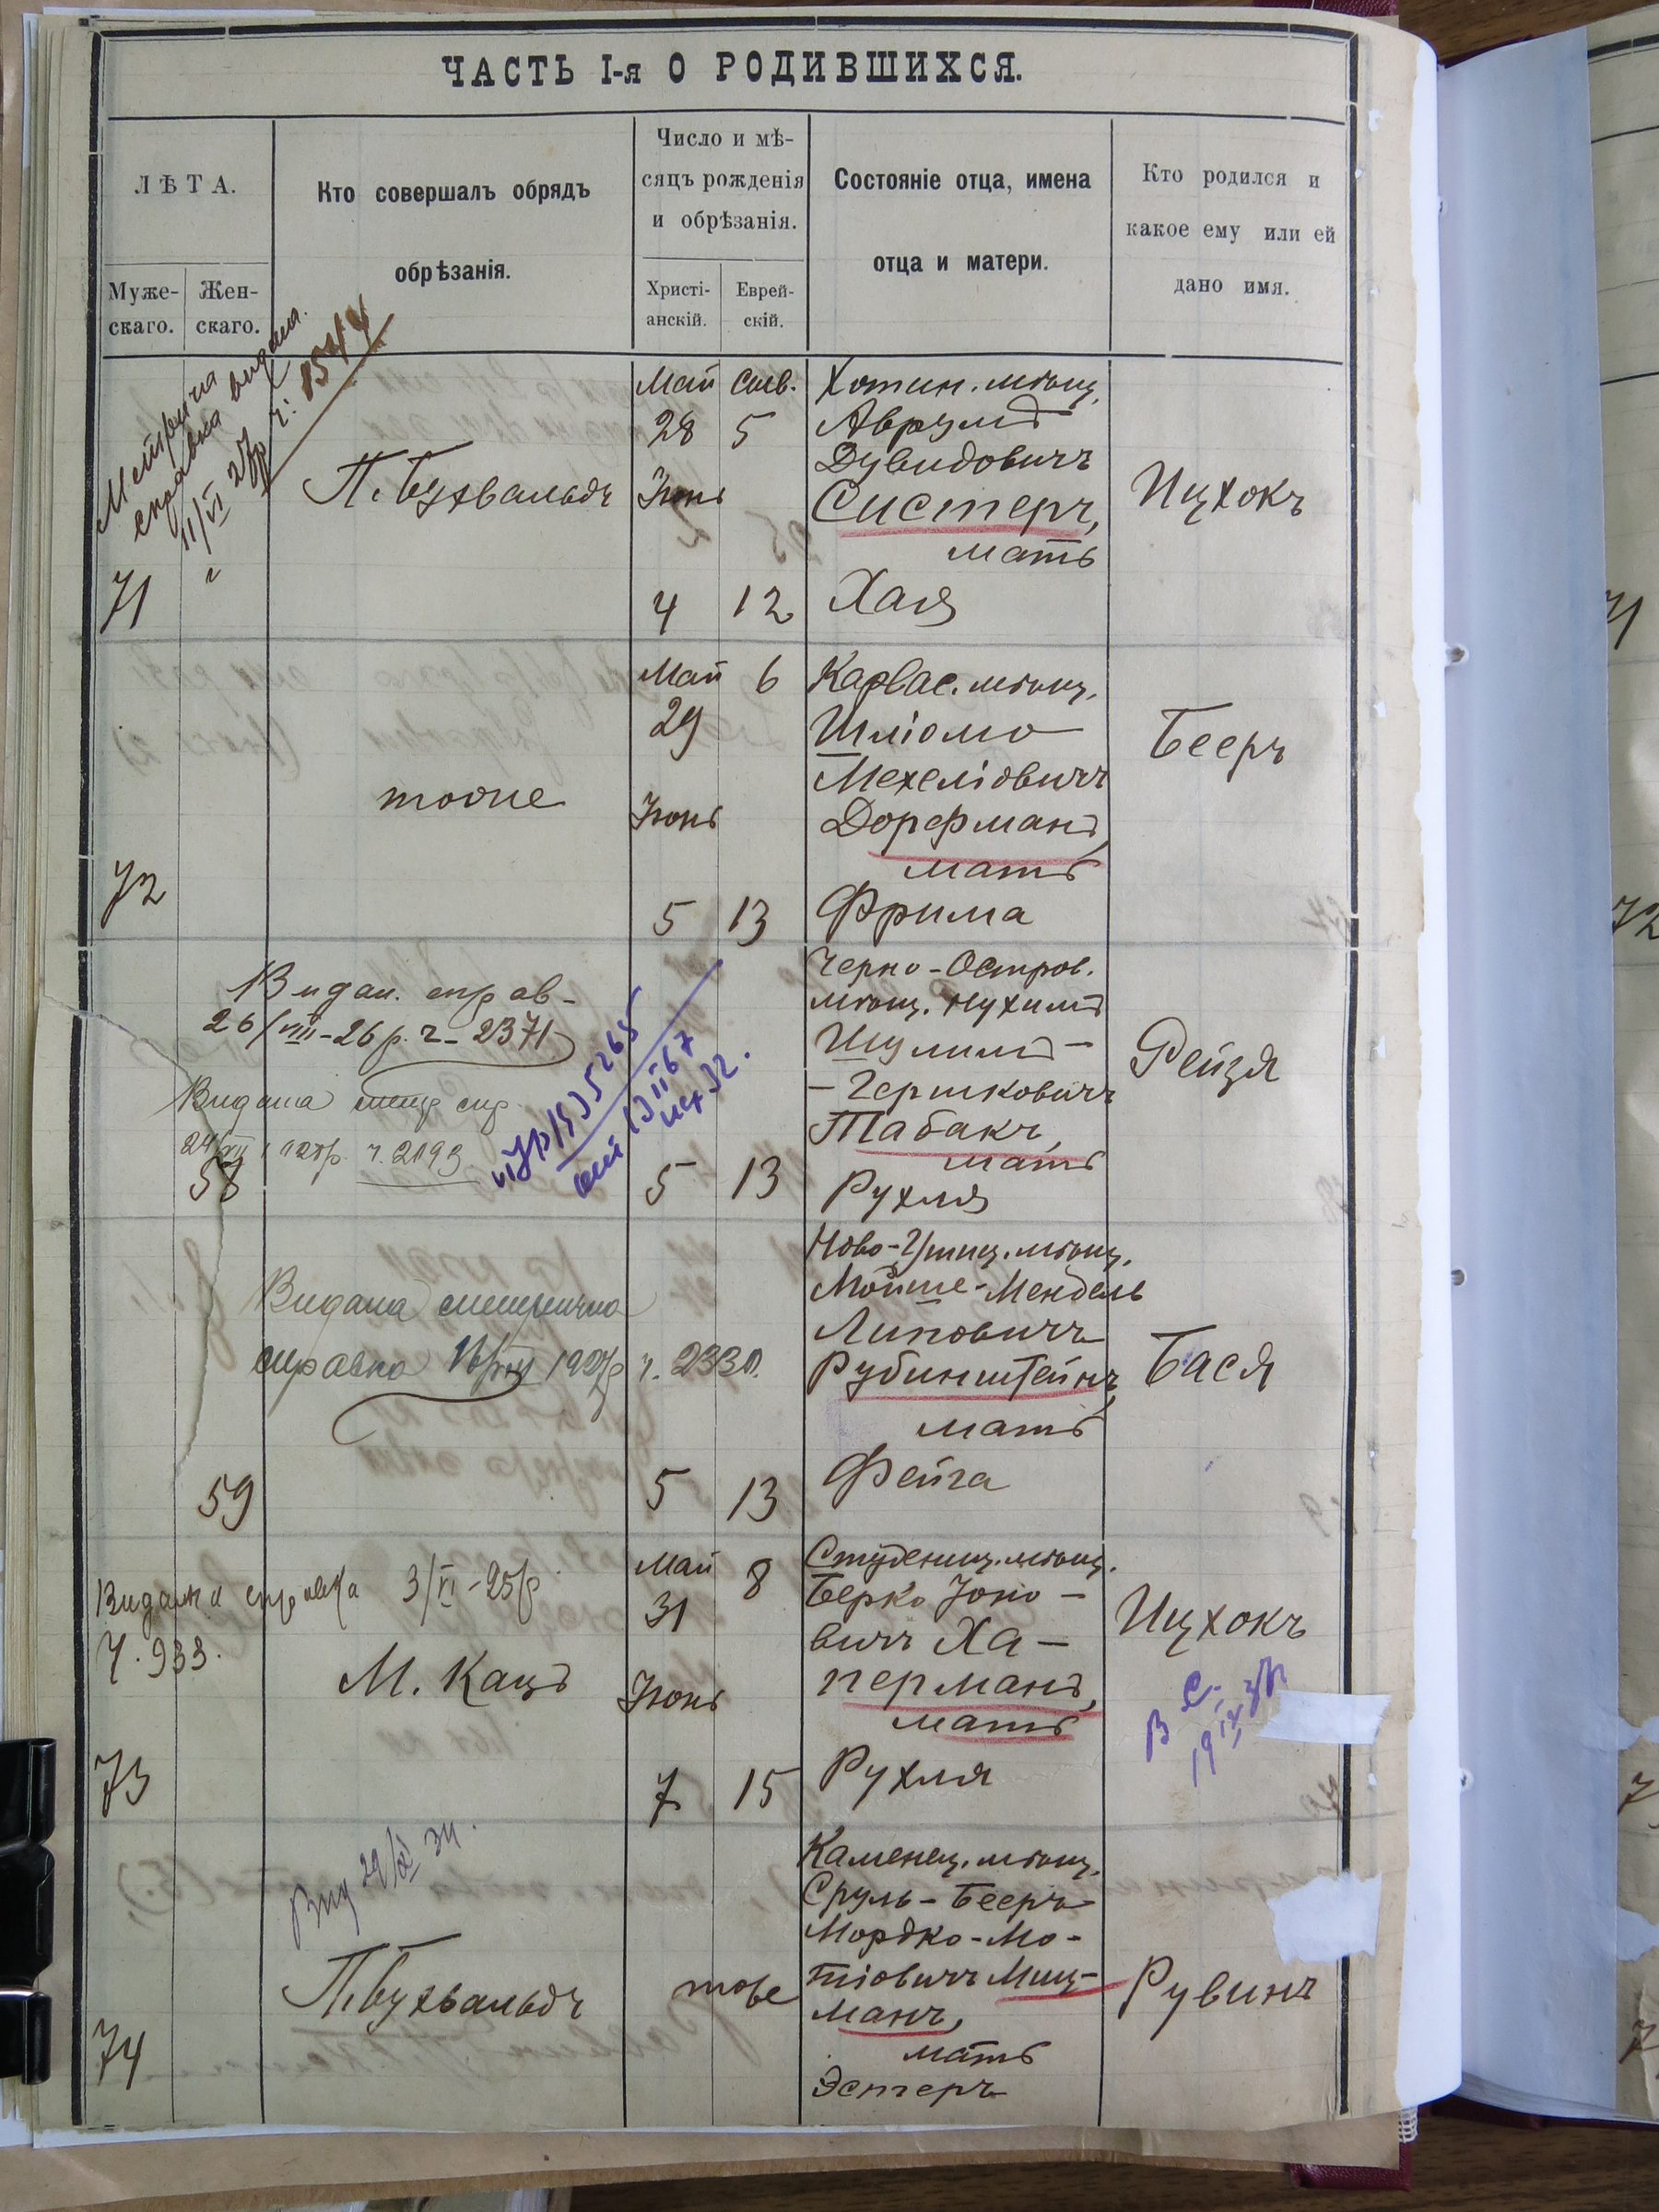 ЧАСТЬ I-я О РОДИВШИХСЯ.
ЛѢТА.
Муже-
скаго.
Жен-
скаго.
Кто совершалъ обрядъ
обрѣзанія.
Число и мѣ-
сяцъ рожденія
и обрѣзанія.
Христі-
анскій.
Еврей-
скій.
Состояніе отца, имена
отца и матери.
Кто родился и
какое ему или ей
дано имя.
Метрична
справка видана.
11/VI
71
П. Бухвальдъ
Май
28
Іюнь
4
Сив.
5
12
Хотин. мѣщ.
Аврумъ
Дувидовичъ
Систеръ,
мать
Хая
Ицхокъ
72
тоже
Май
29
Іюнь
5
6
13
Карвас. мѣщ.
Шліомо
Мехеліовичъ
Дорфманъ,
мать
Фрима
Бееръ
Видан. справ-
26/VIII-26 р. ч- 2371
Видана
ч. 2193
58
5
13
Черно-Остров.
мѣщ. Нухимъ
Шулимъ-
-Гершковичъ
Табакъ,
мать
Рухля
Рейзя
Видана метрична
справка 16/VIII 1927р ч. 2330.
59
5
13
Ново-Ушиц. мѣщ.
Мойше-Мендель
Липовичъ
Рубинштейнъ,
мать
Фейга
Бася
Видана справка 3/VI-25р
ч. 933.
73
М. Кацъ
Май
31
Іюнь
7
8
15
Студениц. мѣщ.
Берко Іоно-
вичъ Ха-
перманъ,
мать
Рухля
Ицхокъ
В. С.
19 IX
Вид 29/XI 34.
74
П. Бухвальдъ
тоже
Каменец. мѣщ.
Сруль-Бееръ
Мордко-Мо-
тіовичъ Миц-
манъ,
мать
Эстеръ
Рувинъ